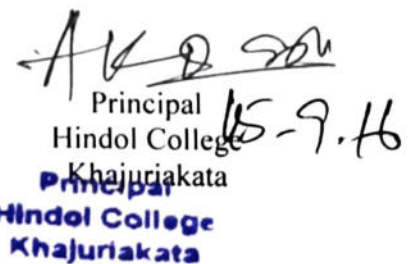 Principal
Hindol College
15-9.16
Khajuriakata
Principal
Hindol College
Khajuriakata